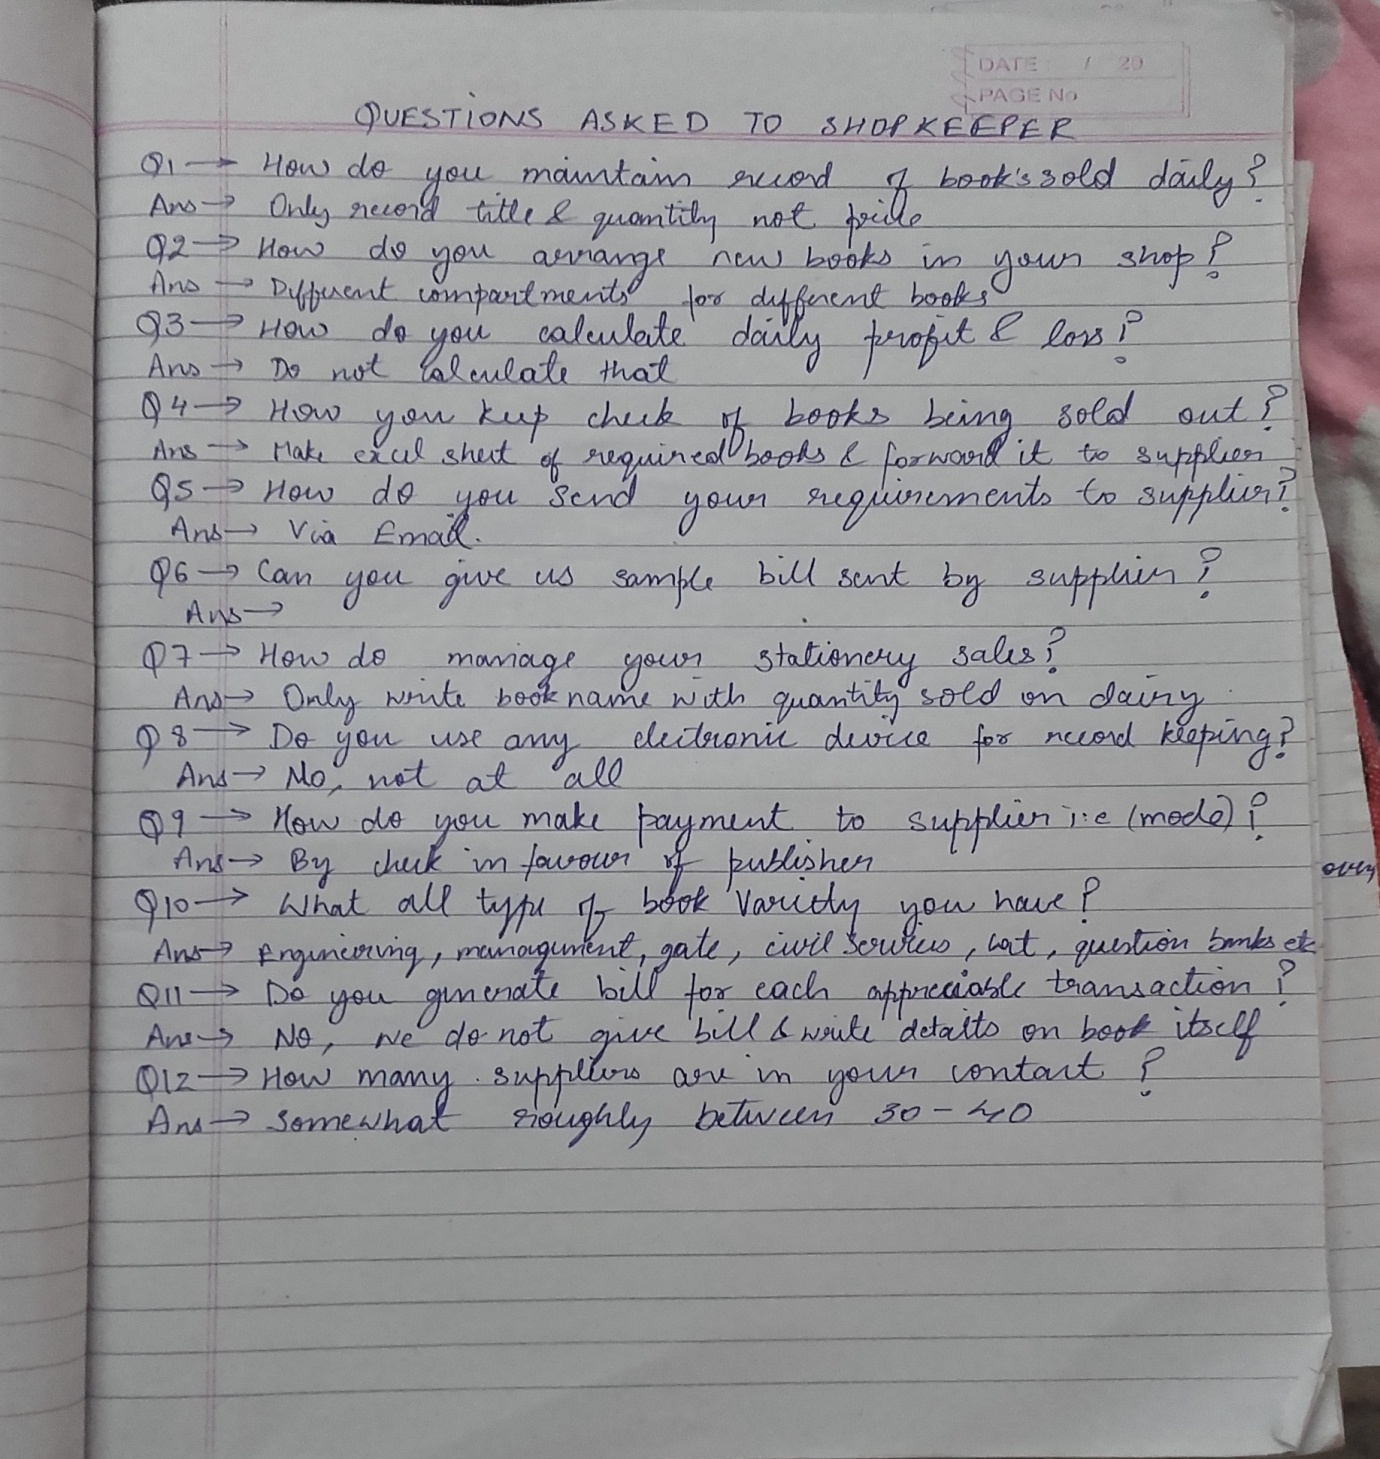 DATE / 20
PAGE No
QUESTIONS ASKED TO SHOPKEEPER
Q1 → How do you maintain record of book's sold daily?
Ans → Only record title & quantity not price
Q2 → How do you arrange new books in your shop?
Ans → Different compartments for different books
Q3 → How do you calculate daily profit & loss?
Ans → Do not calculate that
Q4 → How you keep check of books being sold out?
Ans → Make excel sheet of required books & forward it to supplier
Q5 → How do you send your requirements to supplier?
Ans → Via Email.
Q6 → Can you give us sample bill sent by supplier?
Ans →
Q7 → How do manage your stationery sales?
Ans → Only write book name with quantity sold on dairy
Q8 → Do you use any electronic device for record keeping?
Ans → No, not at all
Q9 → How do you make payment to supplier i.e (mode)?
Ans → By check in favour of publisher
Q10 → What all type of book variety you have?
Ans → Engineering, management, gate, civil services, cat, question banks etc
Q11 → Do you generate bill for each appreciable transaction?
Ans → No, we do not give bill & write details on book itself
Q12 → How many suppliers are in your contact?
Ans → Somewhat roughly between 30-40